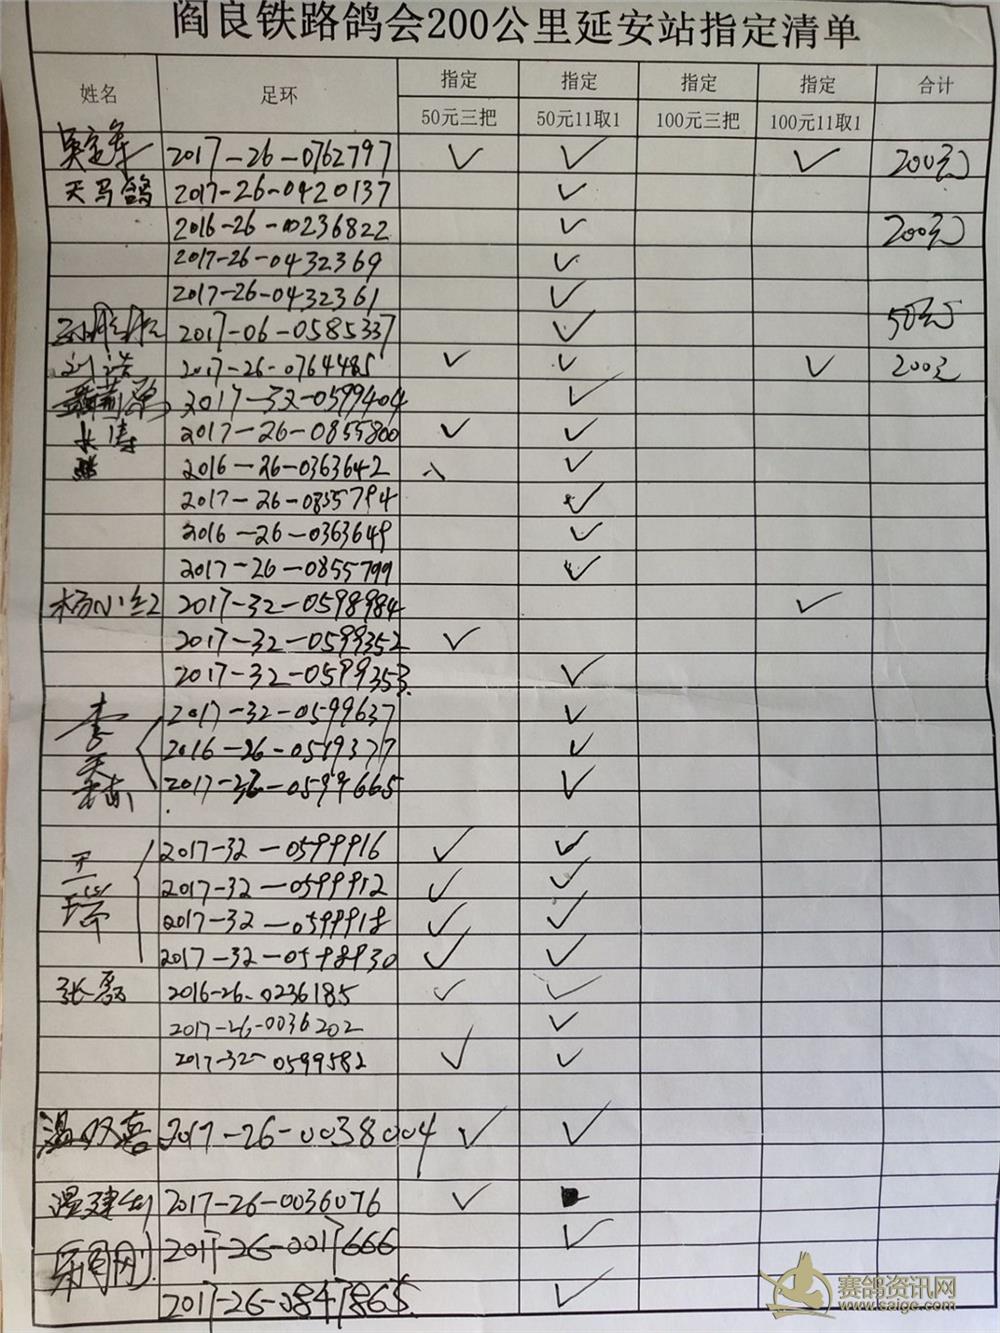 阎良铁路鸽会200公里延安站指定清单
姓名 足环 指定 指定 指定 指定 合计
50元三把 50元11取1 100元三把 100元11取1
2017-26-0762797 ✓ ✓ ✓ 200元
天马鸽 2017-26-0420137 ✓
2016-26-00236822 ✓ 200元
2017-26-0432369 ✓
2017-26-0432361 ✓
2017-06-0585337 ✓ 50元
刘浩 2017-26-0764485 ✓ ✓ ✓ 200元
2017-32-0599404 ✓
2017-26-0855800 ✓ ✓
2016-26-0363642 ✓
2017-26-0855794 ✓
2016-26-0363649 ✓
2017-26-0855799 ✓
杨小红 2017-32-0598984 ✓
2017-32-0599352 ✓
2017-32-0599353 ✓
李 2017-32-0599637 ✓
2016-26-0519377 ✓
0599665 ✓
王瑞 2017-32-0599916 ✓ ✓
2017-32-0599912 ✓ ✓
2017-32-0599918 ✓ ✓
2017-32-0598930 ✓ ✓
张磊 2016-26-0236185 ✓ ✓
2017-26-0036202 ✓
2017-32-0599582 ✓ ✓
温双喜 2017-26-0038004 ✓ ✓
温建 2017-26-0036076 ✓
2017-26-0017666 ✓
2017-26-0847865 ✓
赛鸽资讯网
www.saige.com